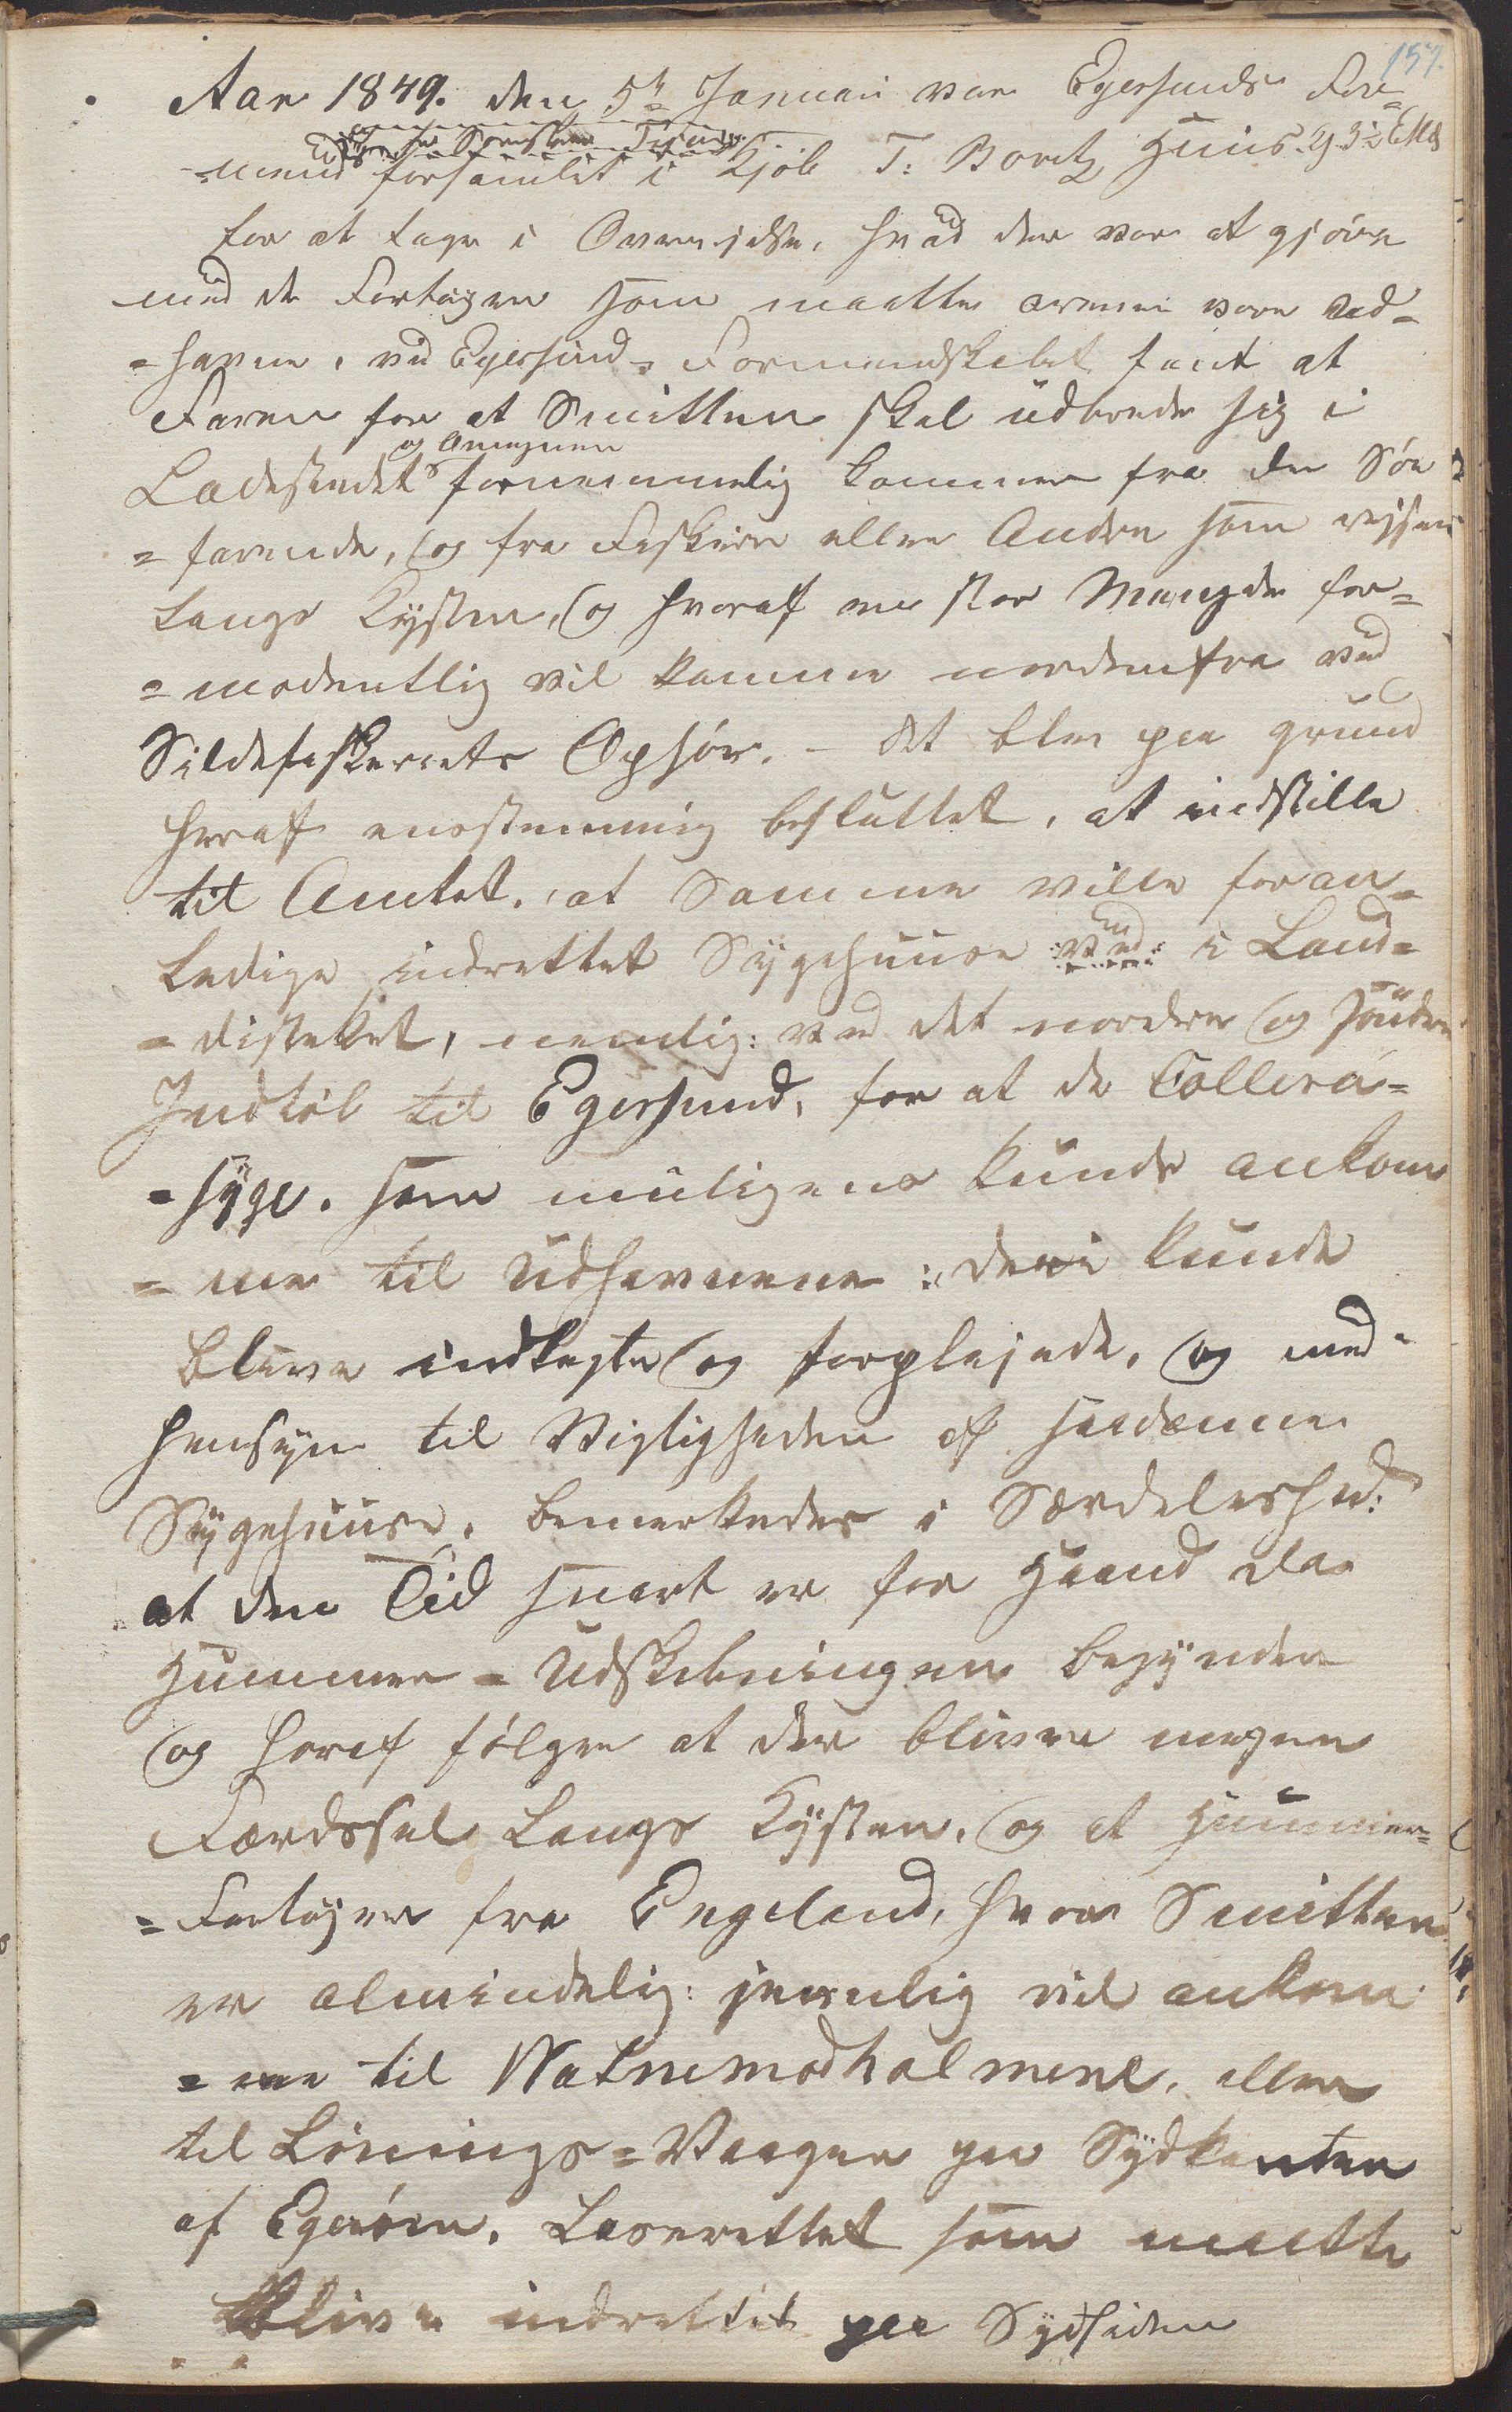 157.
Aar 1849. den 5te Januari var Egersunds For=
=mænd forsamlet i Kjøb T: Boretz Huus kl 3½ EMd
for at tage i Overvejelse, hvad der var at gjøre
med de Fartøyer som maatte ventes være Ud=
=havne, ved Egersund. Formandskabet fant at
Faren for at Smitten skal udbrede sig i
Ladestedet og Omegnen fornemmelig kommer fra de Søe
=farende, og fra Fiskere eller Andre som rejser
langs Kysten, og hvoraf en stor Mængde for=
=modentlig vil komme nordenfra ved
Sildefiskeriets Ophør. - det blev paa grund
heraf enstemmig besluttet, at indstille
til Amtet, at Samme ville foran=
ledige indrettet Sygehuuse i Land=
=distriktet, nemlig: ved det nordre og søndre
Indløb til Egersund, for at de Collera=
=syge, som muligens kunde ankom
=me til Udhavnene: deri kunde
blive indlagte og forplejede, og med
hensyn til Vigtigheden af saadanne
Sygehuuse, bemerkedes i Særdeleshed:
at den Tid snart er for Haand da
Hummer=Udskibningen begynder
og heraf følger at der bliver megen
Færdssel langs Kysten, og at Hummer=
=Fartøyer fra Engeland, hvor Smitten
er almindelig: jevnlig vil ankom
=me til Watnemodholmene, eller
til Lønings=Vaagen paa Sydkanten
af Egerøen. Lazarettet som maatte
blive indrettet paa Sydsiden